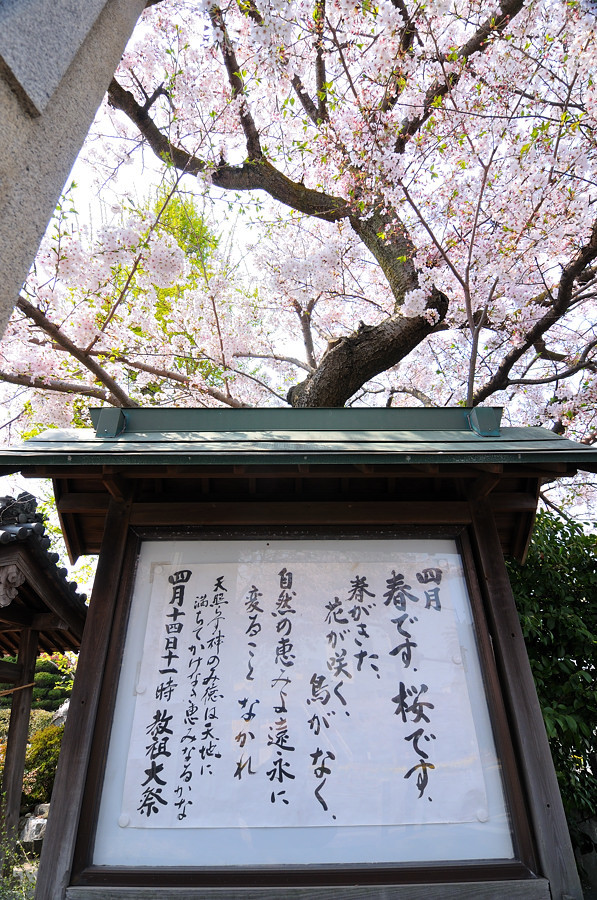 四月
春です、桜です。
春がきた、
花が咲く、鳥がなく、
自然の恵みよ遠永に
変ることなかれ
天照らす神のみ徳は天地に
満ちてかけなき恵みなるかな
四月十四日十一時 教祖大祭